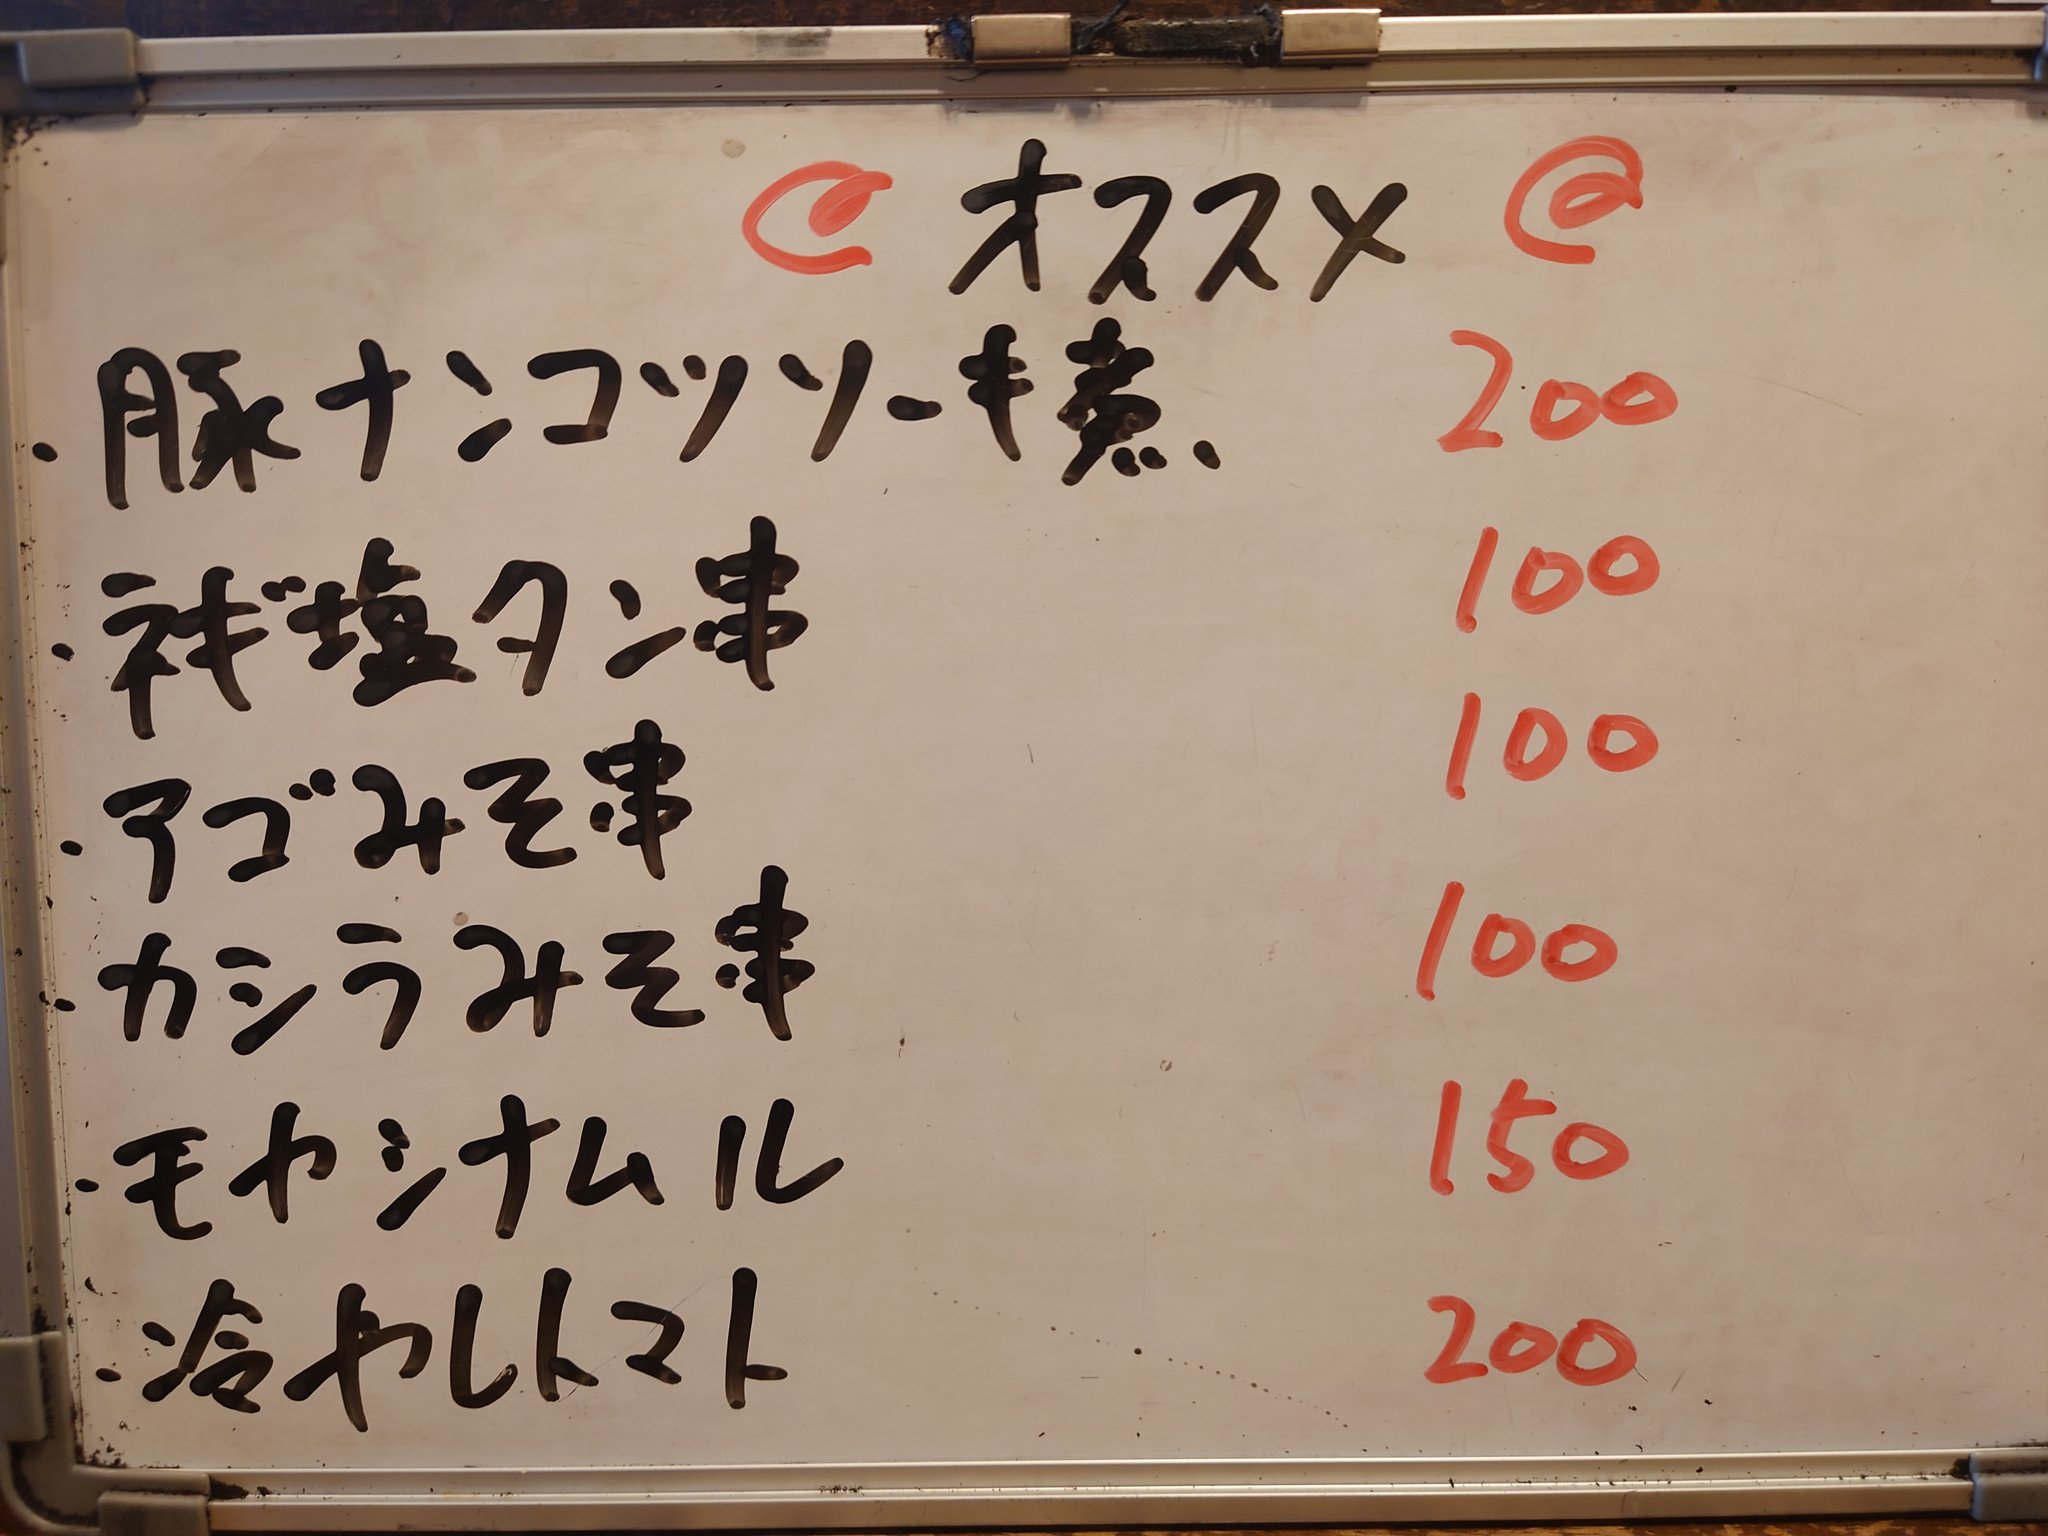 オススメ
・豚ナンコツソーキ煮、 200
・ネギ塩タン串 100
・アゴみそ串 100
・カシラみそ串 100
・モヤシナムル 150
・冷やしトマト 200